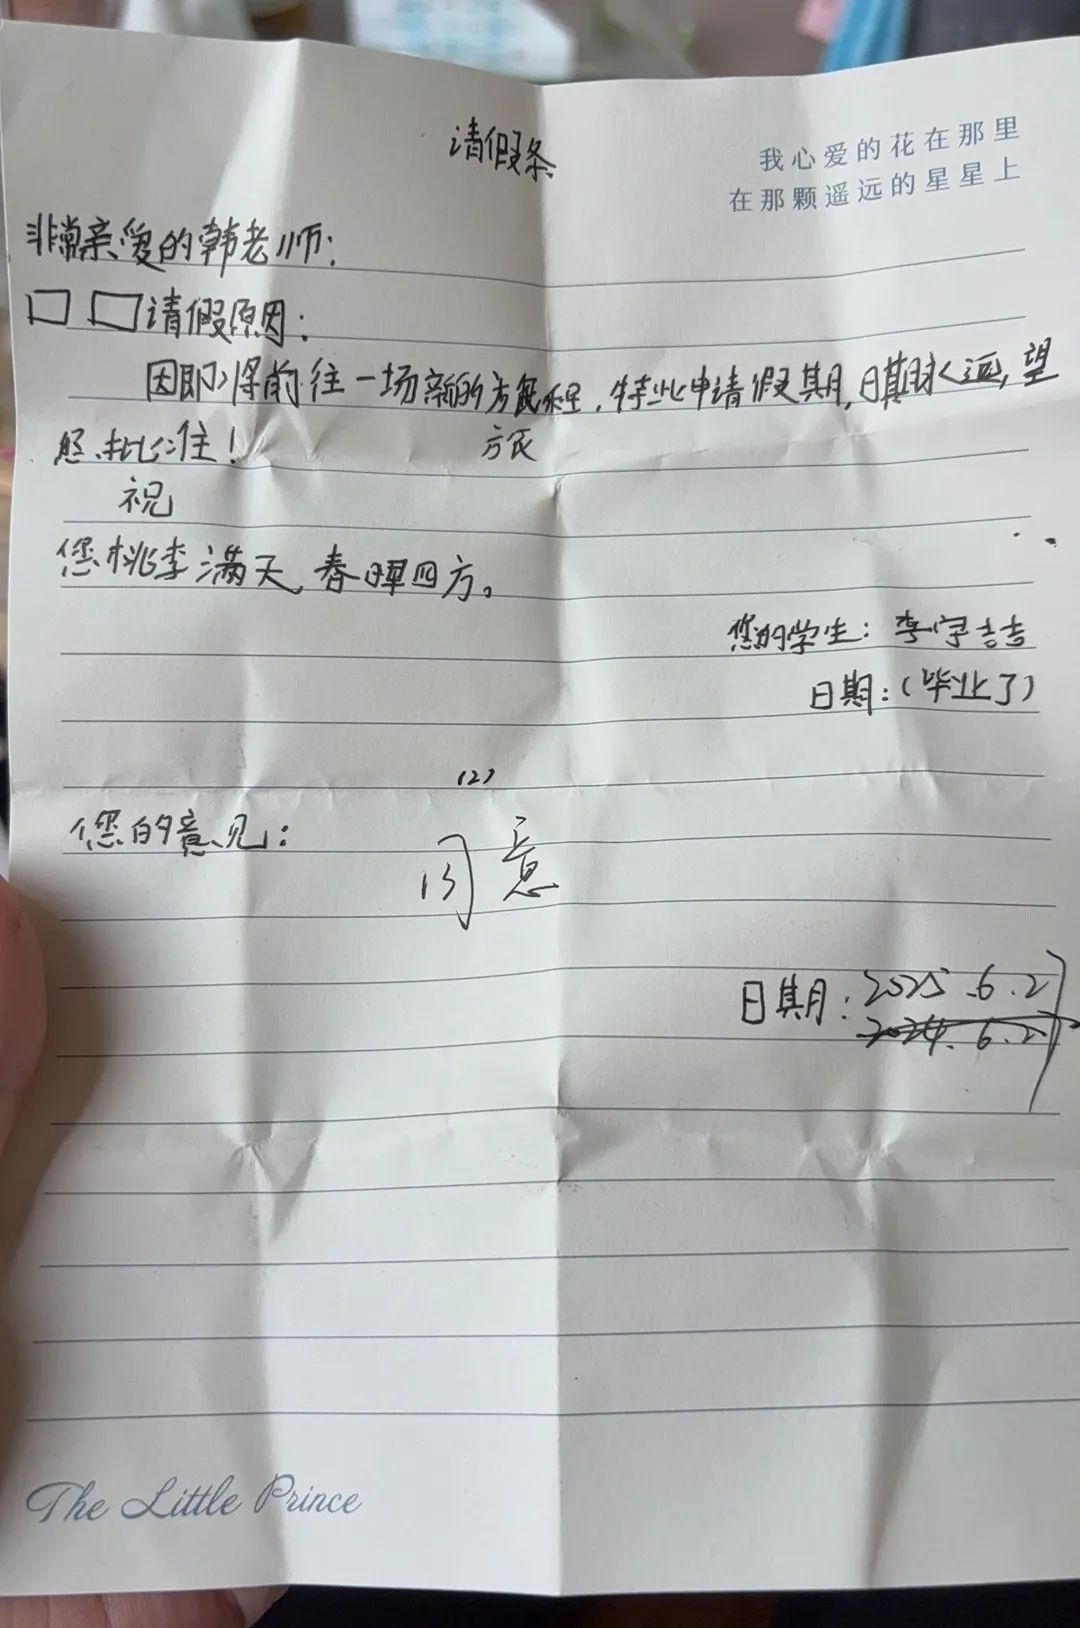 请假条
我心爱的花在那里
在那颗遥远的星星上
非常亲爱的韩老师：
请假原因：
因即将前往一场新的旅程，特此申请假期，日期永远，望
旅
您批准！
祝
您桃李满天，春晖四方。
您的学生：李宇喆
日期：（毕业了）
(2)
您的意见：
同意
日期：2025.6.2
2024.6.2
The Little Prince